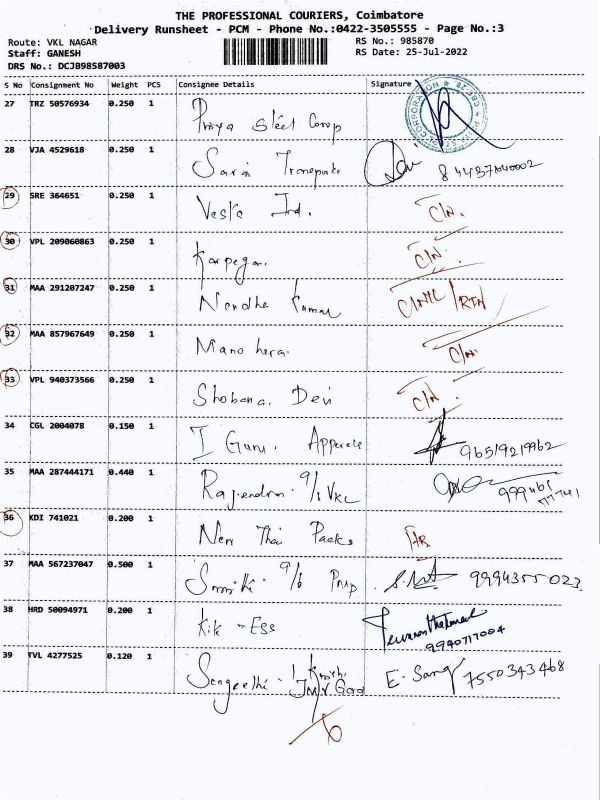 THE PROFESSIONAL COURIERS, Coimbatore
Delivery Runsheet - PCM - Phone No.:0422-3505555 - Page No.:3
Route: VKL NAGAR
Staff: GANESH
DRS No.: DCJB98587003
RS No.: 985870
RS Date: 25-Jul-2022
S No Consignment No Weight PCS Consignee Details Signature
27 TRZ 50576934 0.250 1 Priya Steel Corp
28 VJA 4529618 0.250 1 Saran
29 SRE 364651 0.250 1 Vests Ind. C/N.
30 VPL 209060863 0.250 1 Karpagam C/N.
31 MAA 291207247 0.250 1 Nandha Kumar
32 MAA 857967649 0.250 1 Manohara. C/N.
33 VPL 940373566 0.250 1 Shobana Devi C/N.
34 CGL 2004078 0.150 1 I Guru. 96519219962
35 MAA 287444171 0.440 1 Rajendran. VKL
36 KDI 741021 0.200 1 New Thai Packs
37 MAA 567237047 0.500 1 9994355023
38 HRD 50094971 0.200 1 Kik - Ess
9940717004
39 TVL 4277525 0.120 1 Sangeetha E. Sang 7550343468